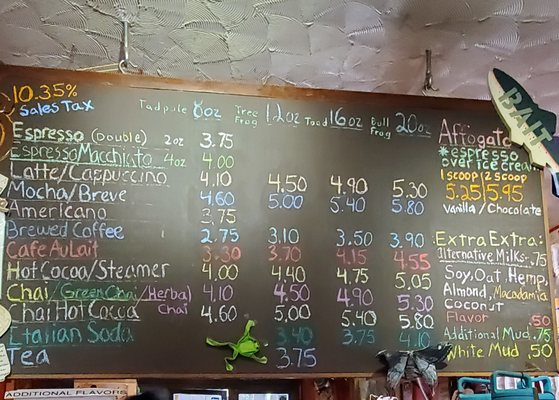 10.35%
Sales Tax
Tadpole 8oz Tree Frog 12oz Toad 16oz Bull Frog 20oz
Espresso (Double) 2oz 3.75
Espresso Macchiato 4oz 4.00
Latte/Cappuccino 4.10 4.50 4.90 5.30
Mocha/Breve 4.60 5.00 5.40 5.80
Americano 3.75
Brewed Coffee 2.75 3.10 3.50 3.90
Cafe Au Lait 3.30 3.70 4.15 4.55
Hot Cocoa/Steamer 4.00 4.40 4.75 5.05
Chai/Green Chai/Herbal Chai 4.10 4.50 4.90 5.30
Chai Hot Cocoa 4.60 5.00 5.40 5.80
Italian Soda 3.40 3.75 4.10
Tea 3.75
BAIT
Affogato
*espresso
over ice cream
1 scoop 2 scoop
5.25 5.95
Vanilla/Chocolate
Extra Extra:
Alternative Milks- .75
Soy, Oat, Hemp,
Almond, Macadamia
Coconut
Flavor .50
Additional Mud .75
White Mud .50
ADDITIONAL FLAVORS